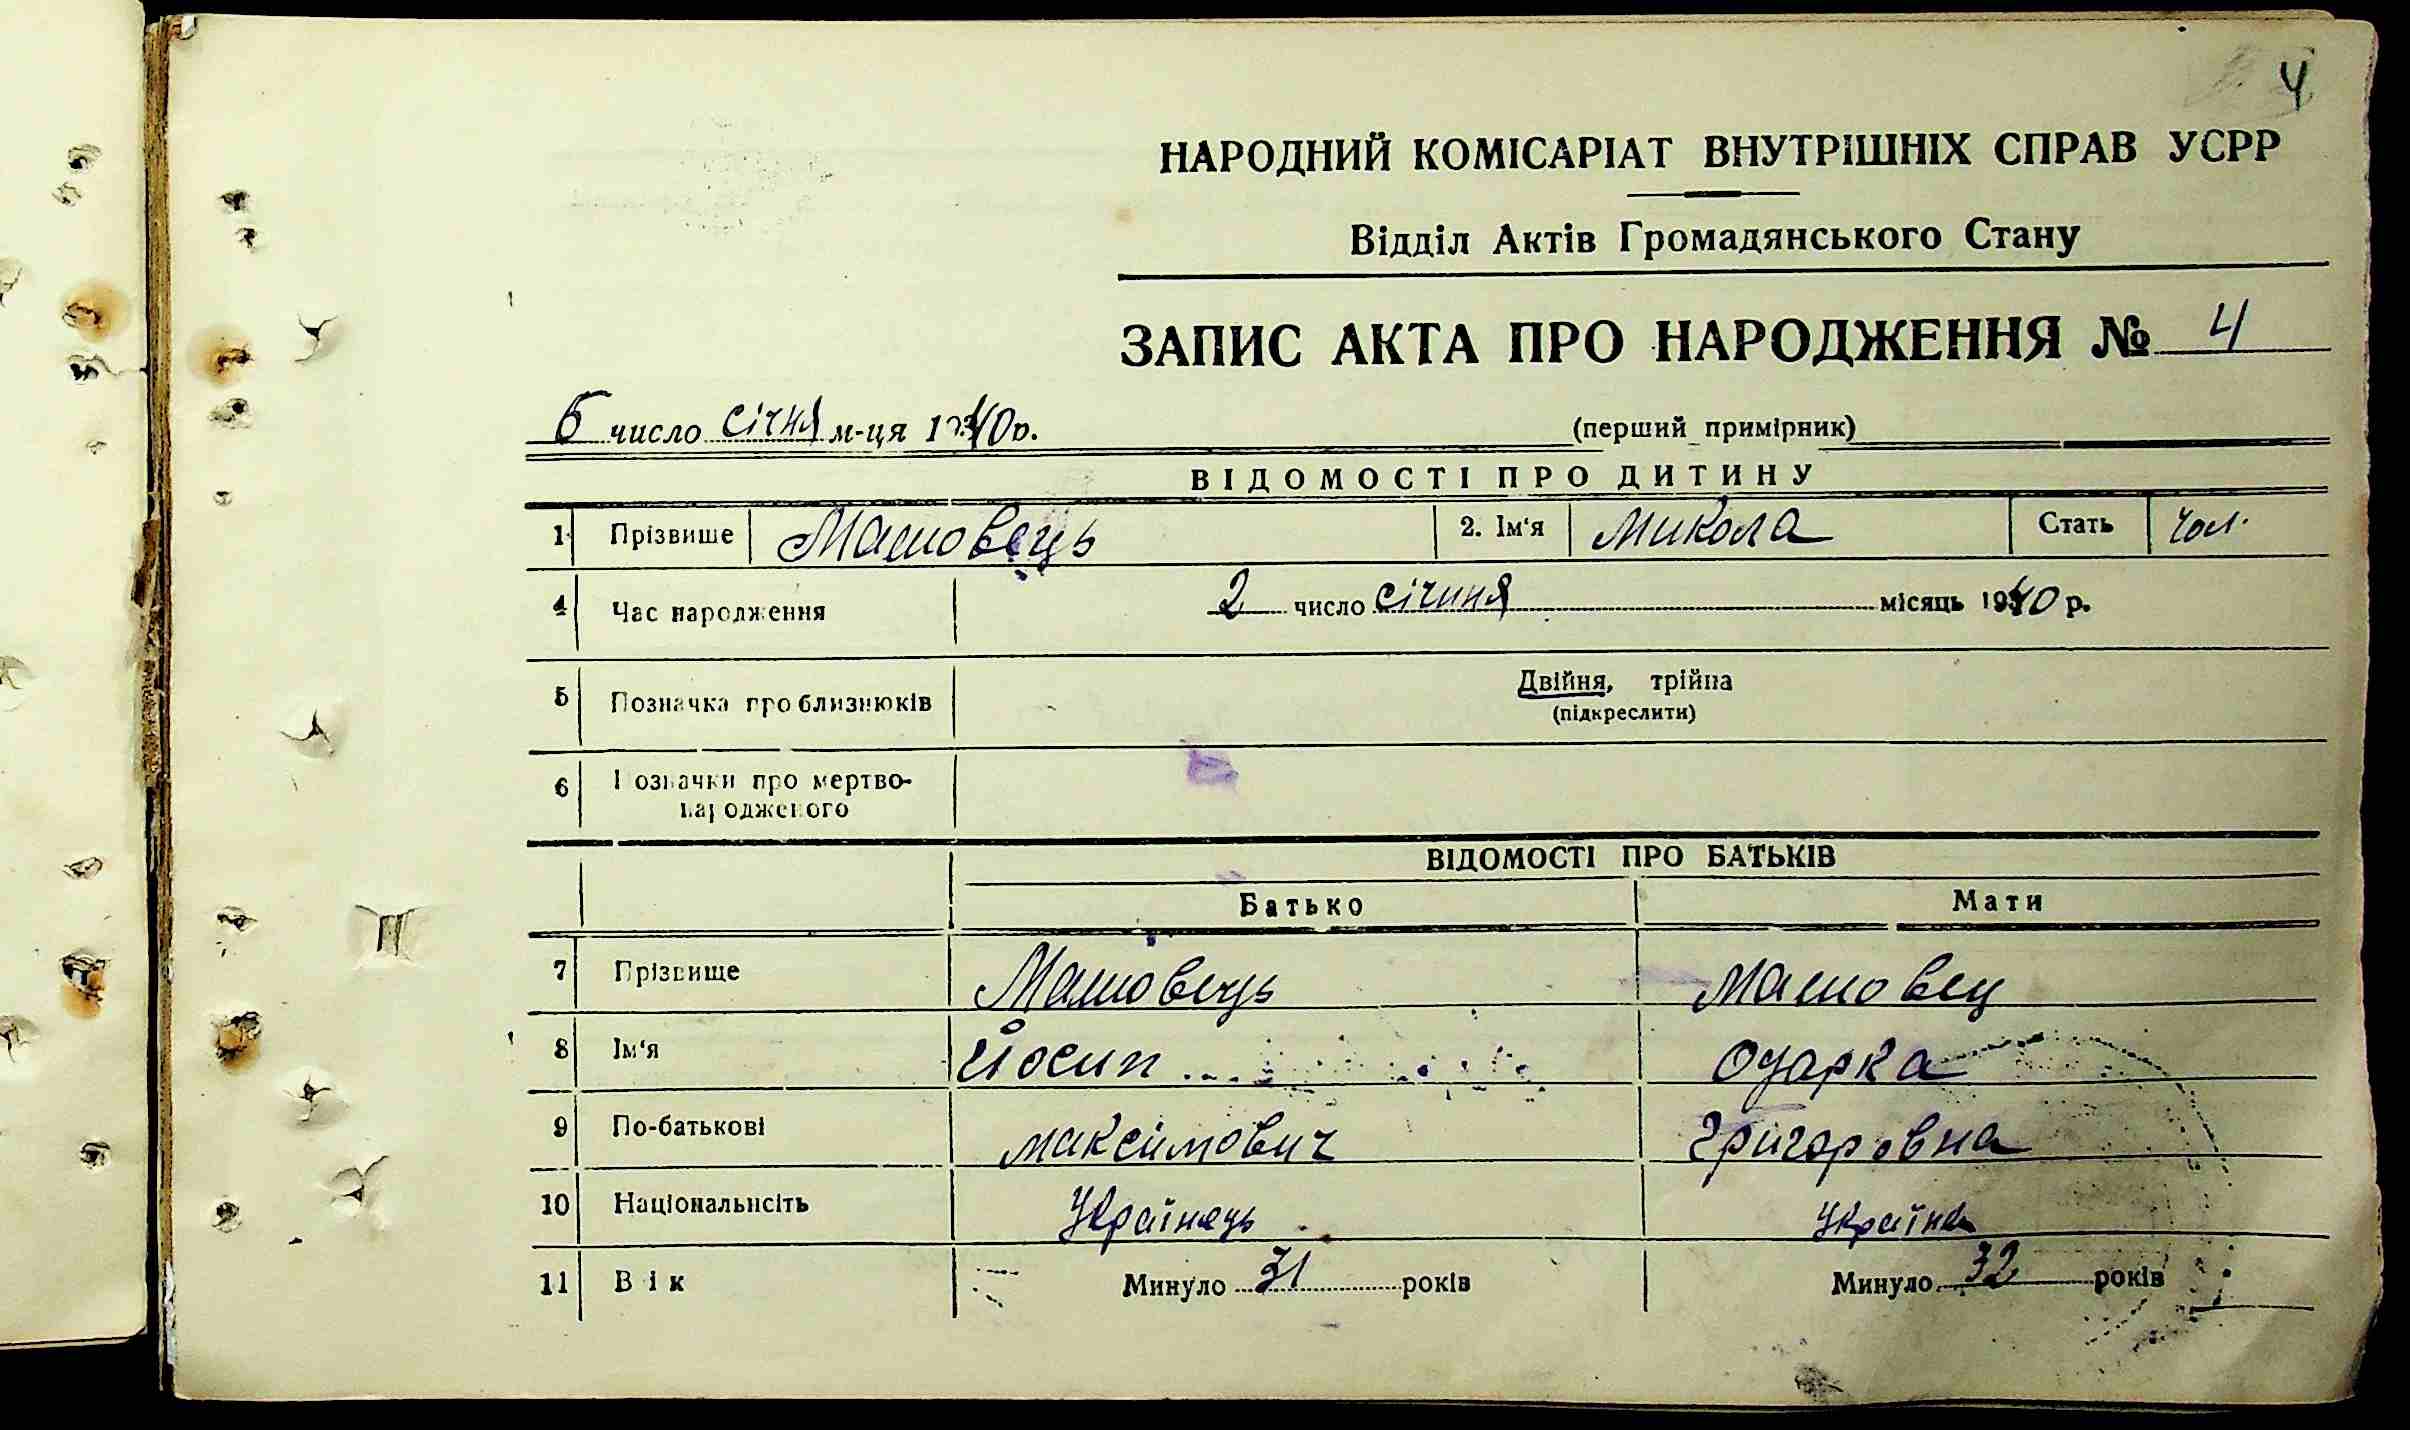 4
НАРОДНИЙ КОМІСАРІАТ ВНУТРІШНІХ СПРАВ УСРР
Відділ Актів Громадянського Стану
ЗАПИС АКТА ПРО НАРОДЖЕННЯ № 4
5 число січня м-ця 1940 р.
(перший примірник)
ВІДОМОСТІ ПРО ДИТИНУ
1 Прізвище Машовець 2. Ім'я Микола Стать чол.
4 Час народження 2 число січиня місяць 1940 р.
5 Позначка про близнюків Двійня, трійна
(підкреслити)
6 Позначки про мертво-
народженого
ВІДОМОСТІ ПРО БАТЬКІВ
Батько Мати
7 Прізвище Машовець Машовец
8 Ім'я Йосип Одарка
9 По-батькові максимович Григоровна
10 Національнсіть Українець Україна
11 Вік Минуло 31 років Минуло 32 років